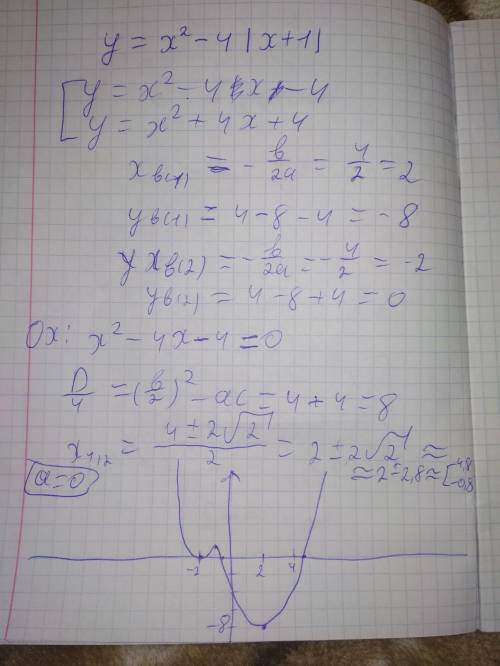 y = x² - 4|x+1|
y = x² - 4x - 4
y = x² + 4x + 4
xв(1) = -в/2a = 4/2 = 2
yв(1) = 4 - 8 - 4 = -8
xв(2) = -в/2a = -4/2 = -2
yв(2) = 4 - 8 + 4 = 0
Ox: x² - 4x - 4 = 0
D/4 = (в/2)² - ac = 4 + 4 = 8
x1,2 = (4 ± 2√2)/2 = 2 ± 2√2 ≈
≈ 2 ± 2,8 ≈ [4,8
-0,8
a = 0
-2 2 4
-8